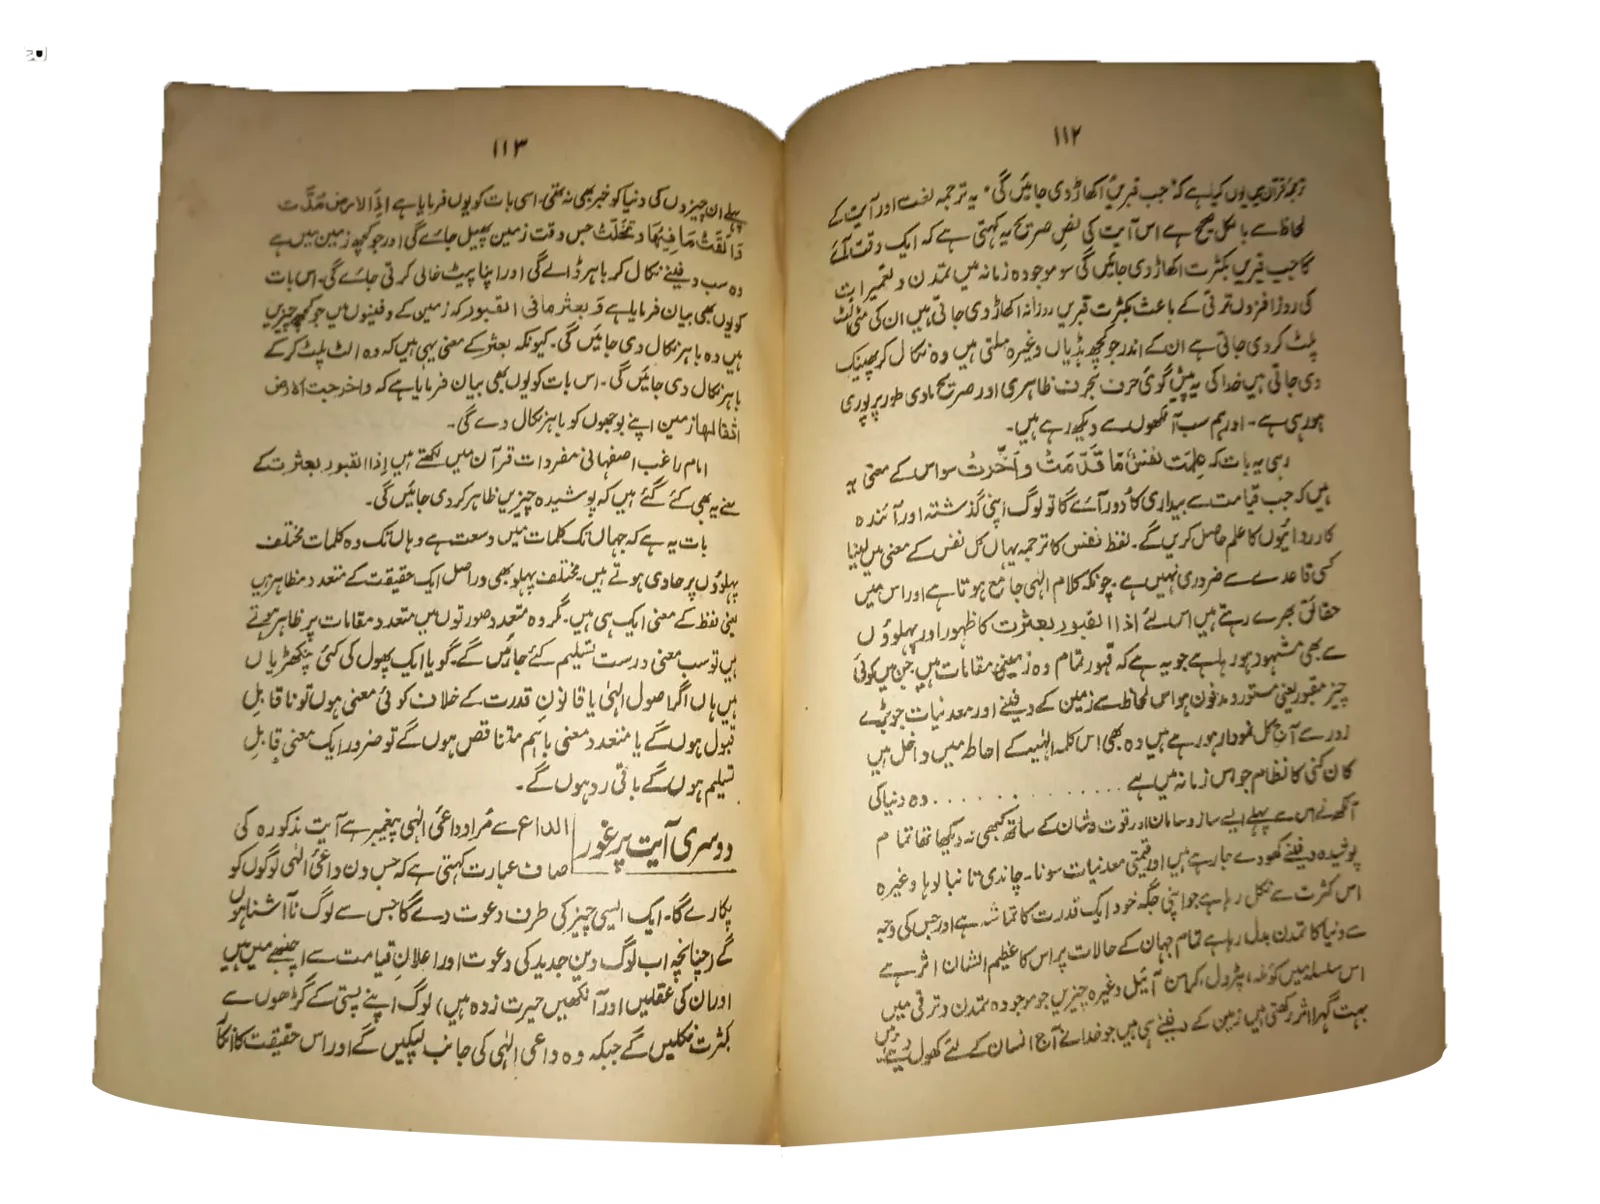 ۱۱۲
ترجمۂ قرآن میں یوں کیا ہے کہ "جب قبریں اکھاڑ دی جائیں گی" یہ ترجمہ لغت اور آیت کے
لحاظ سے بالکل صحیح ہے اس آیت کی نص صریح یہ کہتی ہے کہ ایک وقت آئے
گا جب قبریں بکثرت اکھاڑ دی جائیں گی سو موجودہ زمانہ میں تمدن و تعمیرات
کی روز افزوں ترقی کے باعث بکثرت قبریں روزانہ اکھاڑ دی جاتی ہیں ان کی مٹی الٹ
پلٹ کر دی جاتی ہے ان کے اندر جو کچھ ہڈیاں وغیرہ ملتی ہیں وہ نکال کر پھینک
دی جاتی ہیں خدا کی یہ پیش گوئی حرف بحرف ظاہری اور صریح مادی طور پر پوری
ہو رہی ہے۔ اور ہم سب آنکھوں سے دیکھ رہے ہیں۔
رہی یہ بات کہ عِلمَت نفسٌ مَا قَدّمَتْ وَاَخَّرَتْ سو اس کے معنی یہ
ہیں کہ جب قیامت سے بیداری کا دَور آئے گا تو لوگ اپنی گذشتہ اور آئندہ
کارروائیوں کا علم حاصل کریں گے۔ لفظ نفس کا ترجمہ یہاں کل نفس کے معنی میں لینا
کسی قاعدے سے ضروری نہیں ہے۔ چونکہ کلام الٰہی جامع ہوتا ہے اور اس میں
حقائق بھرے رہتے ہیں اس لئے اذا القبور بعثرت کا ظہور اور پہلوؤں
سے بھی مشہور ہو رہا ہے جو یہ ہے کہ قبور تمام وہ زمینی مقامات ہیں جن میں کوئی
چیز مقبور یعنی مستور و مدفون ہو اس لحاظ سے زمین کے دفینے اور معدنیات جو بڑے
زور سے آج کل نمودار ہو رہے ہیں وہ بھی اس کلمہ الٰہیہ کے احاطہ میں داخل ہیں
کان کنی کا نظام جو اس زمانہ میں ہے . . . . . . . . . . . . . . وہ دنیا کی
آنکھ نے اس سے پہلے ایسے ساز و سامان اور قوت و شان کے ساتھ کبھی نہ دیکھا تھا تمام
پوشیدہ دفینے کھودے جا رہے ہیں اور قیمتی معدنیات سونا۔ چاندی تانبا لوہا وغیرہ
اس کثرت سے نکل رہا ہے جو اپنی جگہ خود ایک قدرت کا تماشہ ہے اور جس کی وجہ
سے دنیا کا تمدن بدل رہا ہے تمام جہان کے حالات پر اس کا عظیم الشان اثر ہے
اس سلسلہ میں کوئلہ، پٹرول، کراسن آئیل وغیرہ چیزیں جو موجودہ تمدن و ترقی میں
بہت گہرا اثر رکھتی ہیں زمین کے دفینے ہی ہیں جو خدا نے آج انسان کے لئے کھول
۱۱۳
پہلے ان چیزوں کی دنیا کو خبر بھی نہ تھی۔ اسی بات کو یوں فرمایا ہے اِذَا الارض مُدَّت
وَاَلقَتْ مَا فِیہَا وَتَخَلَّتْ جس وقت زمین پھیل جائے گی اور جو کچھ زمین میں ہے
وہ سب دفینے نکال کر باہر ڈالے گی اور اپنا پیٹ خالی کرتی جائے گی۔ اس بات
کو یوں بھی بیان فرمایا ہے وَ بعثر مافی القبور کہ زمین کے دفینوں میں جو کچھ چیزیں
ہیں وہ باہر نکال دی جائیں گی۔ کیونکہ بعثر کے معنی یہی ہیں کہ وہ الٹ پلٹ کر کے
باہر نکال دی جائیں گی۔ اس بات کو یوں بھی بیان فرمایا ہے کہ واخرجت الارض
اثقالہا زمین اپنے بوجھوں کو باہر نکال دے گی۔
امام راغب اصفہانی مفردات قرآن میں لکھتے ہیں اِذا القبور بعثرت کے
معنے یہ بھی کئے گئے ہیں کہ پوشیدہ چیزیں ظاہر کر دی جائیں گی۔
بات یہ ہے کہ جہاں تک کلمات میں وسعت ہے وہاں تک وہ کلمات مختلف
پہلوؤں پر حاوی ہوتے ہیں۔ مختلف پہلو بھی دراصل ایک حقیقت کے متعدد مظاہر ہیں
یعنی لفظ کے معنی ایک ہی ہیں۔ مگر وہ متعدد صورتوں میں متعدد مقامات پر ظاہر ہوتے
ہیں تو سب معنی درست تسلیم کئے جائیں گے۔ گویا ایک پھول کی کئی پنکھڑیاں
ہیں ہاں اگر اصول الٰہی یا قانونِ قدرت کے خلاف کوئی معنی ہوں تو ناقابلِ
قبول ہوں گے یا متعدد معنی باہم متناقص ہوں گے تو ضرور ایک معنی قابلِ
تسلیم ہوں گے باقی رد ہوں گے۔
دوسری آیت پر غور
الداع سے مُراد داعیٔ الٰہی پیغمبر ہے آیت مذکورہ کی
صاف عبارت کہتی ہے کہ جس دن داعیٔ الٰہی لوگوں کو
پکارے گا۔ ایک ایسی چیز کی طرف دعوت دے گا جس سے لوگ ناآشنا ہوں
گے (چنانچہ اب لوگ دینِ جدید کی دعوت اور اعلانِ قیامت سے اچنبھے میں ہیں
اور ان کی عقلیں اور آنکھیں حیرت زدہ ہیں) لوگ اپنے پستی کے گڑھوں سے
بکثرت نکلیں گے جبکہ وہ داعی الٰہی کی جانب لپکیں گے اور اس حقیقت کا انکا